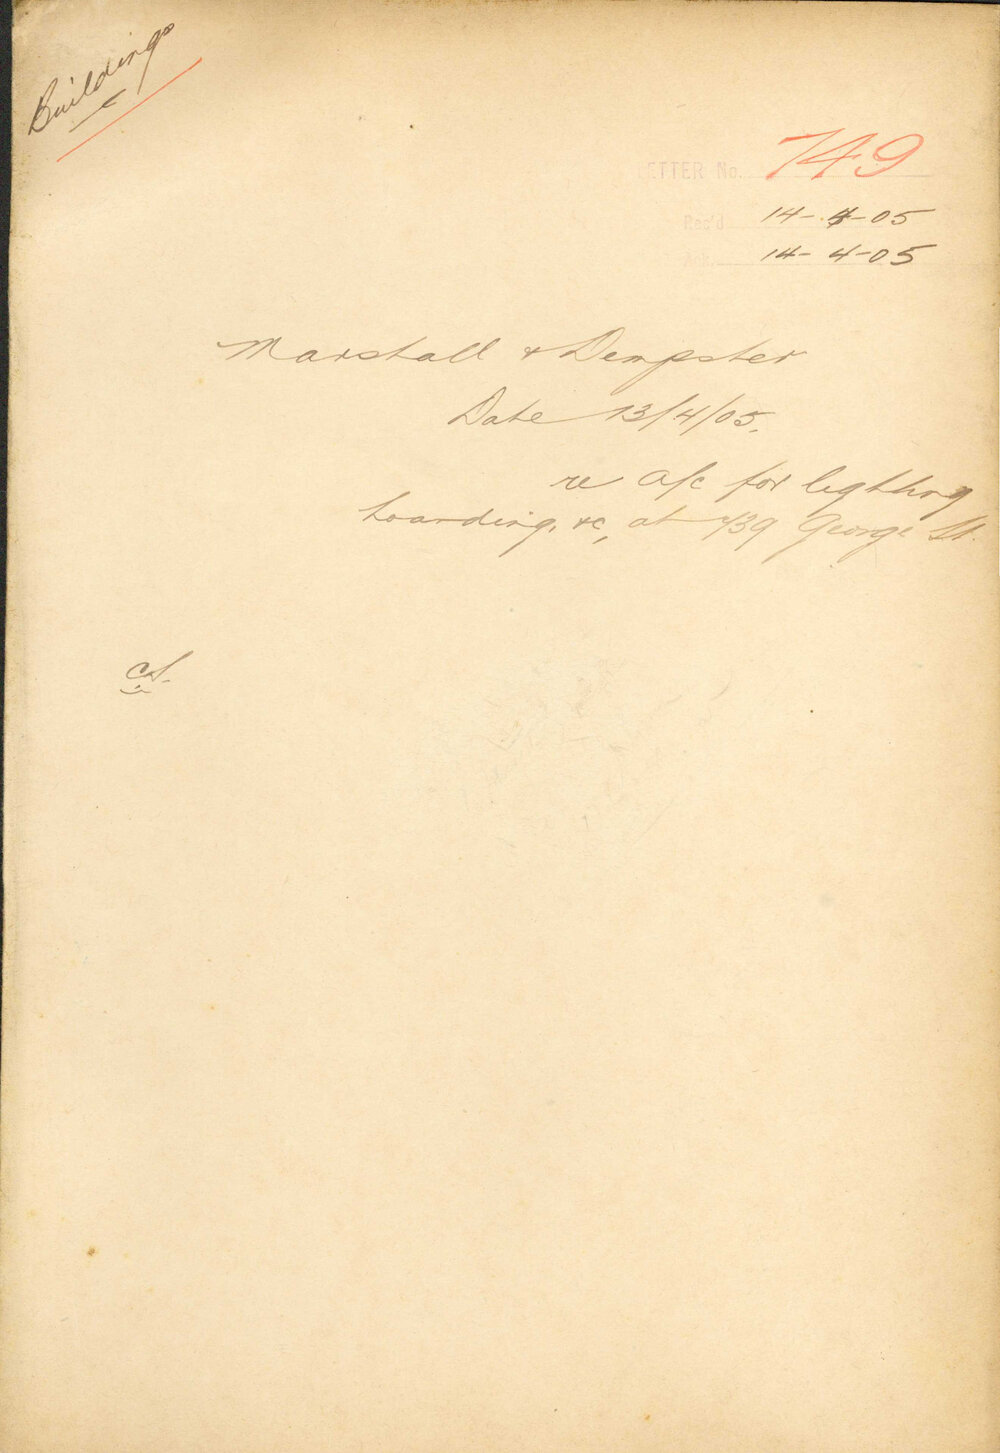 Buildings
LETTER No. 749
Rec'd 14-4-05
14-4-05
Marshall & Dempster
Date 13/4/05.
re a/c for ligthing
hoarding, &c, at 739 George St.